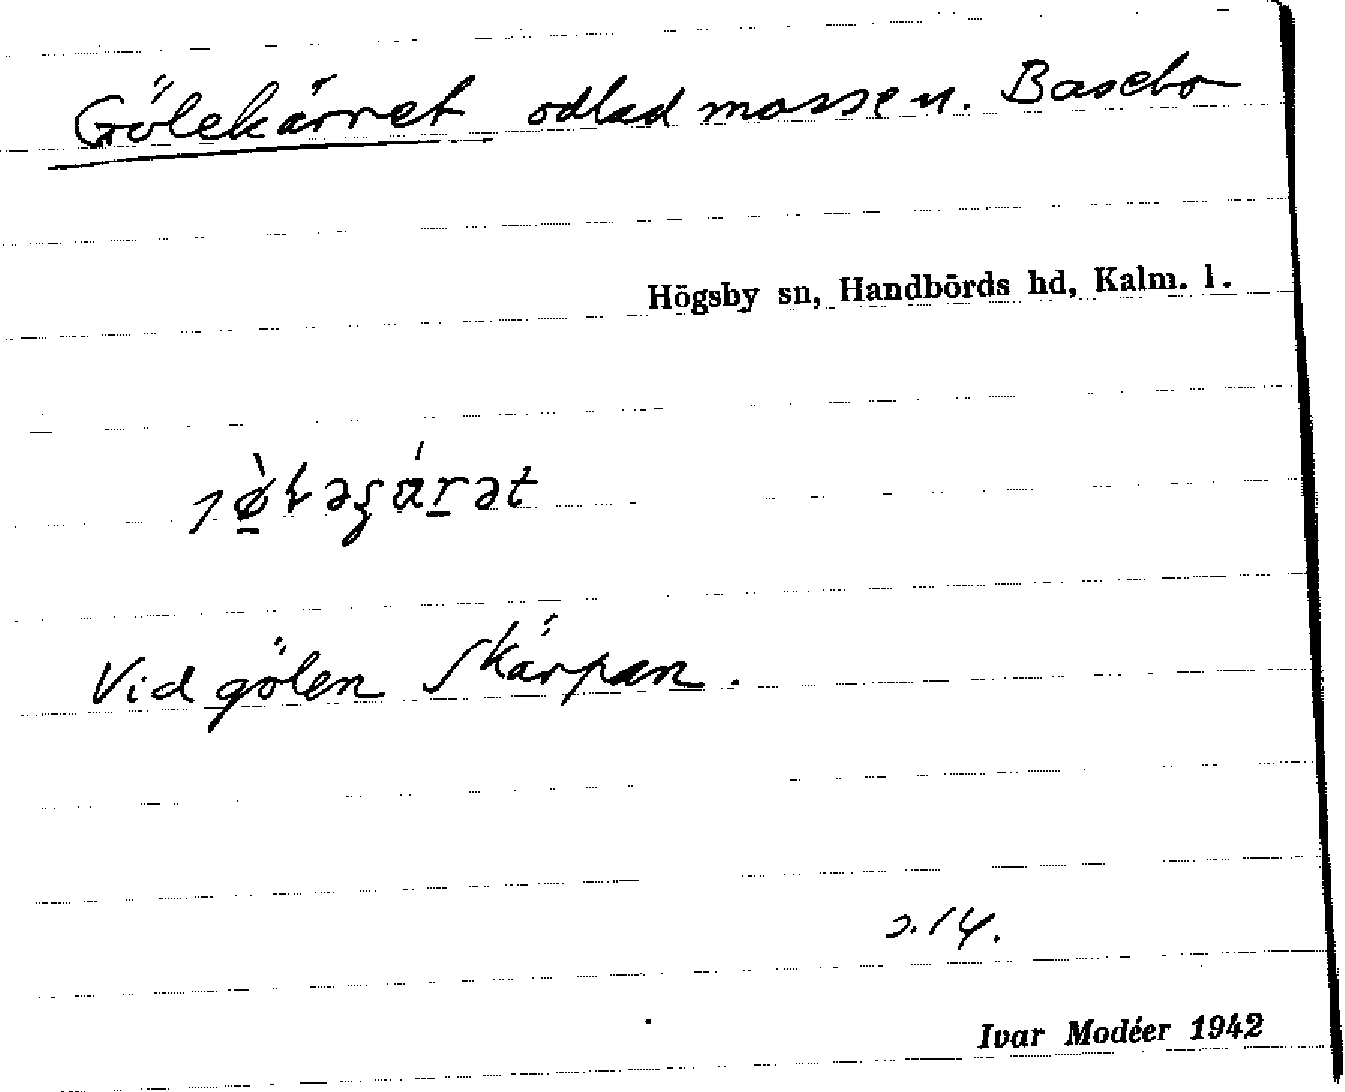 Gölekärret odlad mosse u. Basebo
Högsby sn, Handbörds hd, Kalm. l.
Vid gölen Skärpan.
s. 14.
Ivar Modéer 1942